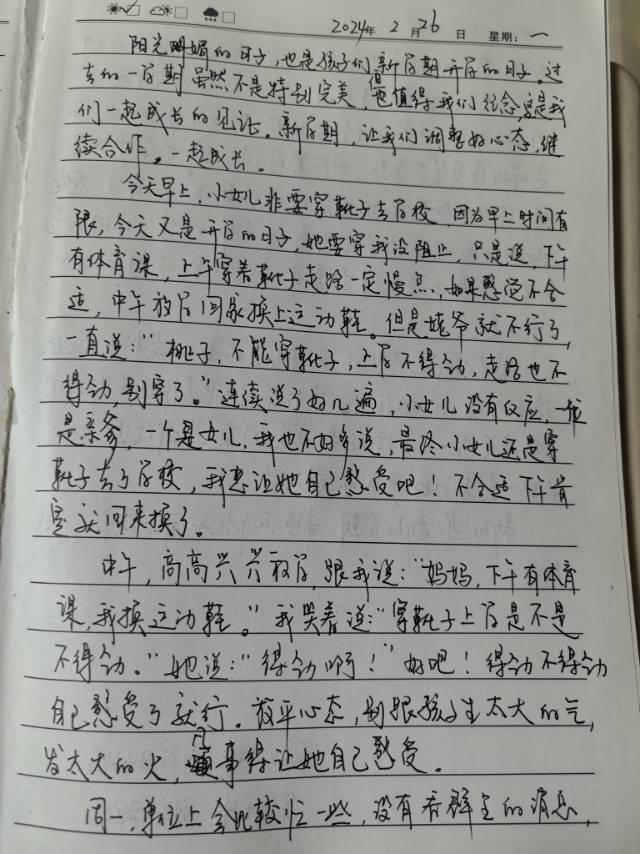 2024年 2月26日 星期:一
阳光明媚的日子,也是孩子们新学期开学的日子。过
去的一学期虽然不是特别完美,但也值得我们纪念,是我
们一起成长的见证。新学期,让我们调整好心态,继
续合作。一起成长。
今天早上,小女儿非要穿靴子去学校,因为早上时间有
限,今天又是开学的日子,她要穿我没阻止,只是说,下午
有体育课,上午穿着靴子走路一定慢点,如果感觉不合
适,中午放学回家换上运动鞋。但是姥爷就不行了,
一直说:“桃子,不能穿靴子,上学不得劲,走路也不
得劲别穿了。”连续说了好几遍,小女儿没有反应,一位
是亲爹,一个是女儿,我也不好多说,最终小女儿还是穿
靴子去了学校,我想让她自己感受吧!不合适下午肯
定就回来换了。
中午,高高兴兴放学,跟我说:“妈妈,下午有体育
课,我换运动鞋。”我笑着说:“穿靴子上学是不是
不得劲。”她说:“得劲啊!”好吧!得劲不得劲
自己感受了就行。放平心态,别跟孩子生太大的气,
发太大的火,凡事得让她自己感受。
周一,单位上会比较忙一些,没有看群里的消息,